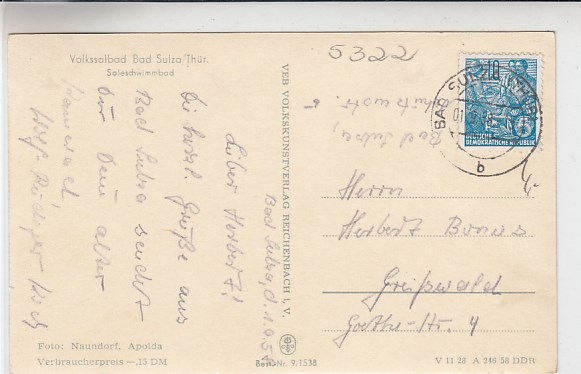 Volkssolbad Bad Sulza/Thür.
Soleschwimmbad
5322
Bad Sulza, d. 1.9.58
Lieber Herbert!
Die herzl. Grüße aus
Bad Sulza sendet
Dir Dein alter
Rüdiger
Foto: Naundorf, Apolda
Verbraucherpreis —.15 DM
VEB VOLKSKUNSTVERLAG REICHENBACH I. V.
Best.-Nr. 9/1538
Bad Sulza,
BAD SULZA
b
10
DEUTSCHE
DEMOKRATISCHE REPUBLIK
Herrn
Herbert
Greifswald
Goethe-Str. 4
V 11 28 A 246 58 DDR